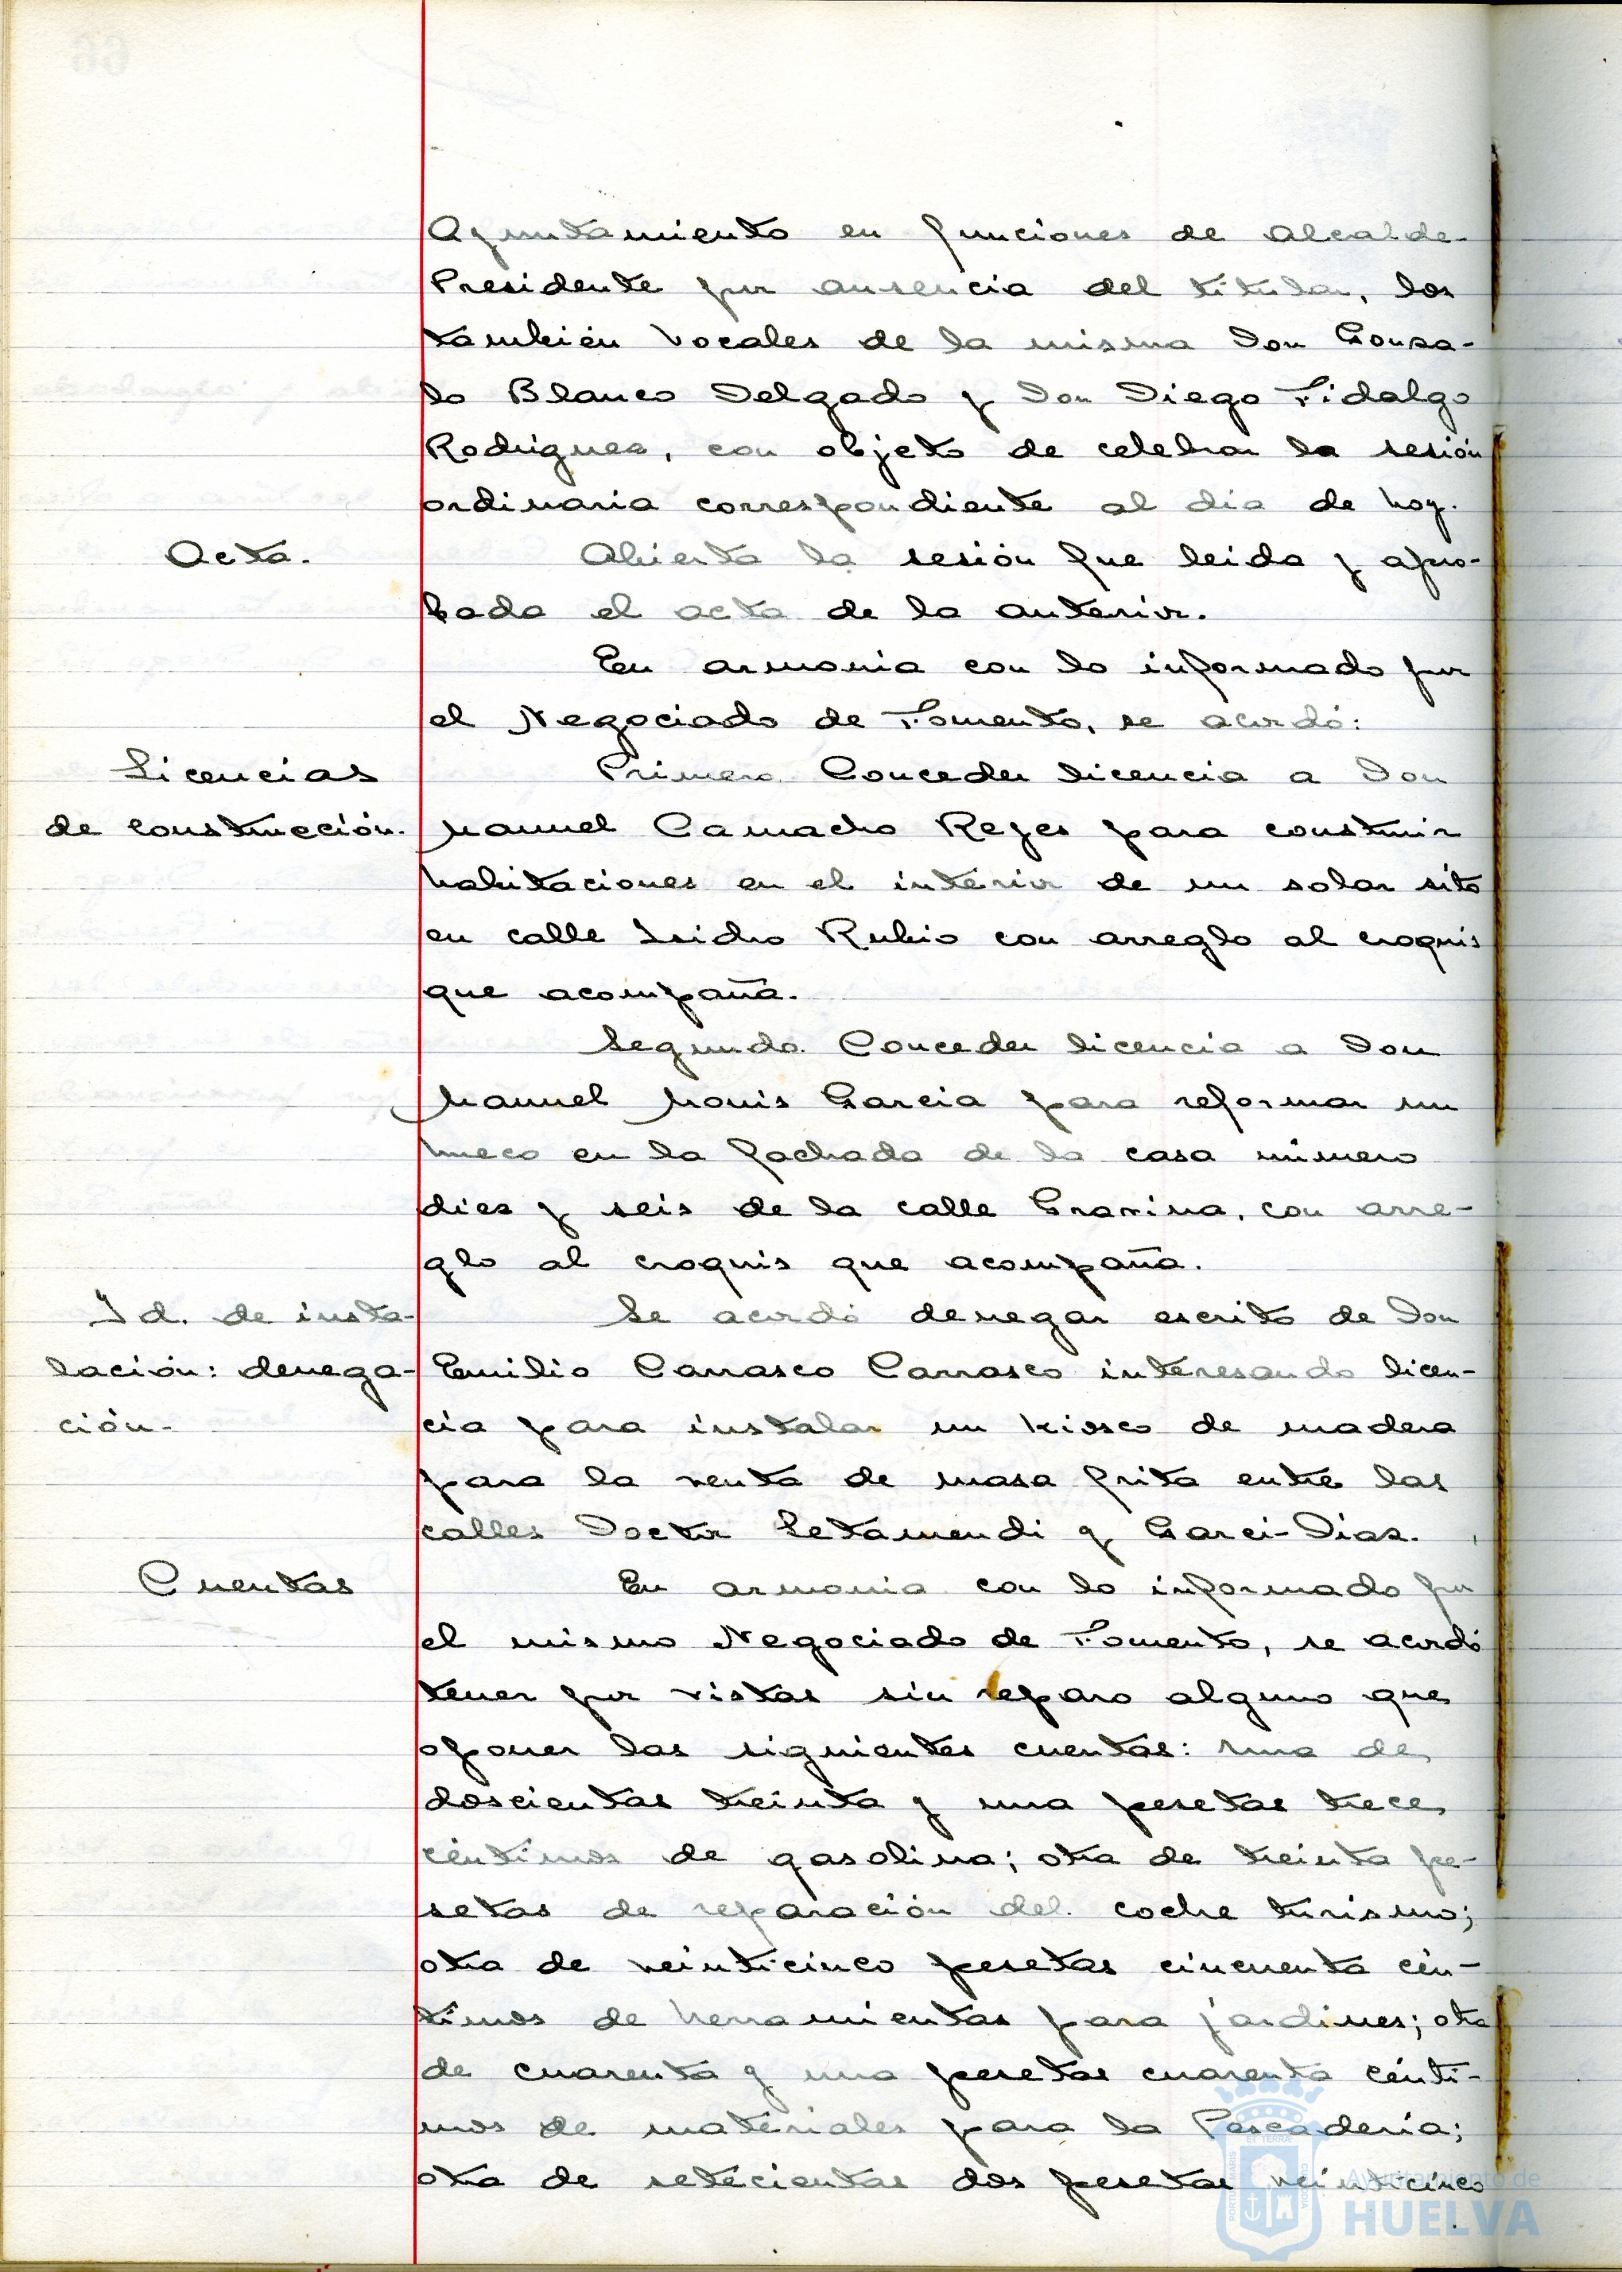 Ayuntamiento en funciones de Alcalde-
Presidente por ausencia del titular, los
también Vocales de la misma Don Gonza-
lo Blanco Delgado y Don Diego Fidalgo
Rodriguez, con objeto de celebrar la sesión
ordinaria correspondiente al dia de hoy.
Acta.
Abierta la sesión fue leida y apro-
bada el acta de la anterior.
En armonia con lo informado por
el Negociado de Fomento, se acordó:
Licencias
de construcción.
Primero. Conceder licencia a Don
Manuel Camacho Reyes para construir
habitaciones en el interior de un solar sito
en calle Isidro Rubio con arreglo al croquis
que acompaña.
Segundo. Conceder licencia a Don
Manuel Monis Garcia para reformar un
hueco en la fachada de la casa número
diez y seis de la calle Gravina, con arre-
glo al croquis que acompaña.
Id. de insta-
lación: denega-
ción.-
Se acordó denegar escrito de Don
Emilio Carrasco Carrasco interesando licen-
cia para instalar un kiosco de madera
para la venta de masa frita entre las
calles Doctor Letamendi y Garci-Diaz.
Cuentas
En armonia con lo informado por
el mismo Negociado de Fomento, se acordó
tener por vistas sin reparo alguno que
oponer las siguientes cuentas: una de
doscientas treinta y una pesetas trece
céntimos de gasolina; otra de treinta pe-
setas de reparación del coche turismo;
otra de veinticinco pesetas cincuenta cén-
timos de herramientas para jardines; otra
de cuarenta y una pesetas cuarenta cénti-
mos de materiales para la Pescaderia;
otra de setecientas dos pesetas veinticinco
Ayuntamiento de
HUELVA